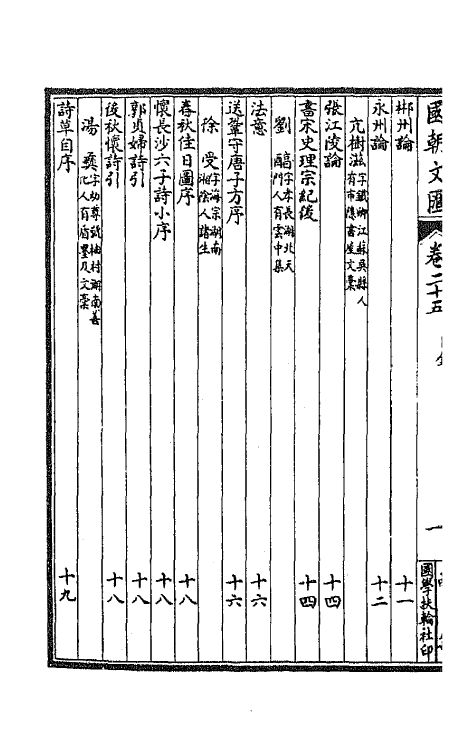 國朝文匯 卷二十五 一
國學扶輪社印
郴州論 十一
永州論 十二
亢樹滋 字鐵卿江蘇吳縣人有市隱書屋文稾
張江陵論 十四
書宋史理宗紀後 十四
劉 字孝長湖北天門人有雲中集
法意 十六
送鞏守唐子方序 十六
徐受 字海宗湖南湘陰人諸生
春秋佳日圖序 十八
懷長沙六子詩小序 十八
郭貞婦詩引 十八
後秋懷詩引 十八
湯彝 字幼尊號柚村湖南善化人有盾墨及文稾
詩草自序 十九